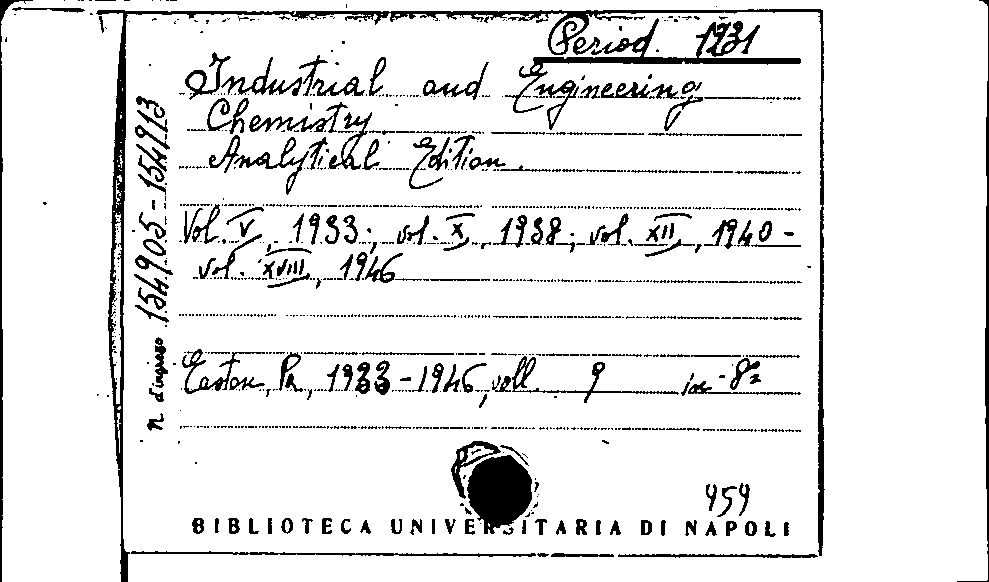 Period. 1931
Industrial and Engineering
Chemistry.
Analytical Edition.
Vol. V, 1933; vol. X, 1938; vol. XII, 1940 -
vol. XVIII, 1946
Easton, Pa, 1933-1946, voll. 9 in-8º
n. d'ingresso 154905-154913
959
BIBLIOTECA UNIVERSITARIA DI NAPOLI